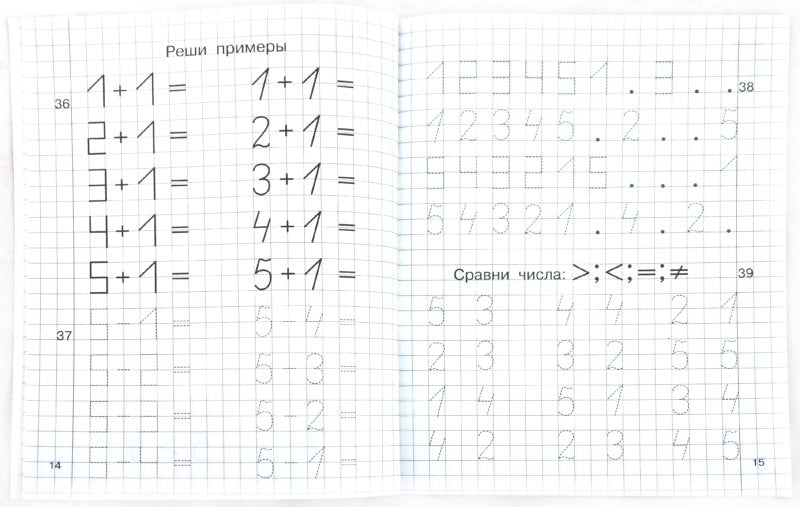 Реши примеры
36
1+1= 1+1=
2+1= 2+1=
3+1= 3+1=
4+1= 4+1=
5+1= 5+1=
37
5-1= 5-4=
5-2= 5-3=
5-3= 5-2=
5-4= 5-1=
14
1 2 3 4 5 1 . 3 . . 38
1 2 3 4 5 . 2 . . 5
5 4 3 2 1 5 . . . 1
5 4 3 2 1 . 4 . 2 .
Сравни числа: >;<;=;≠ 39
5 3 4 4 2 1
2 3 3 2 5 5
1 4 5 1 3 4
4 2 2 3 4 5
15